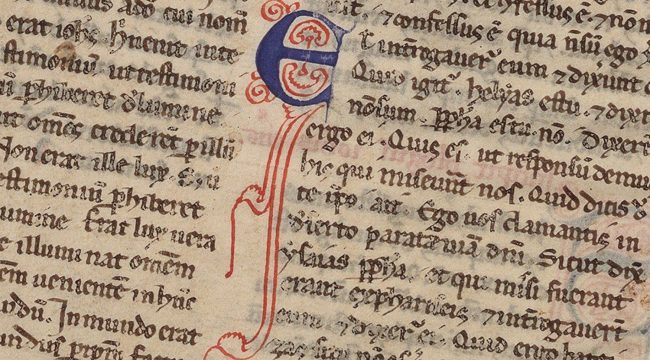 missus a dō cui nom̄
erat iohs. hic uenit inte
stimoniū ut testimoni
ū phiberet de lumine
ut om̄es crederēt p illū
Non erat ille lux. Sed
testimoniū phiberet
lumine Erat lux uera
e illuminat omēm
em uenientē in hūc
dū. In mundo erat
undus p ipm̄ fact
⁊ confessus ē. quia nō sū ego
Et interrogauer̄ eum ⁊ dixerūt
Quid igit̄. helyas es tu. ⁊ dixit
non sum. ppha es tu. nō. Dixer
ergo ei. Quis es. ut responsū demus
his qui miserunt nos. Quid dicis
te ipo. ait. Ego uox clamantis in
deserto parate uiā dn̄i. Sicut dix
ysaias ppha. et qui missi fuerant
erant ex phariseis ⁊ interrogauerūt
eum ⁊ dixer̄ ei. Quid ergo bap